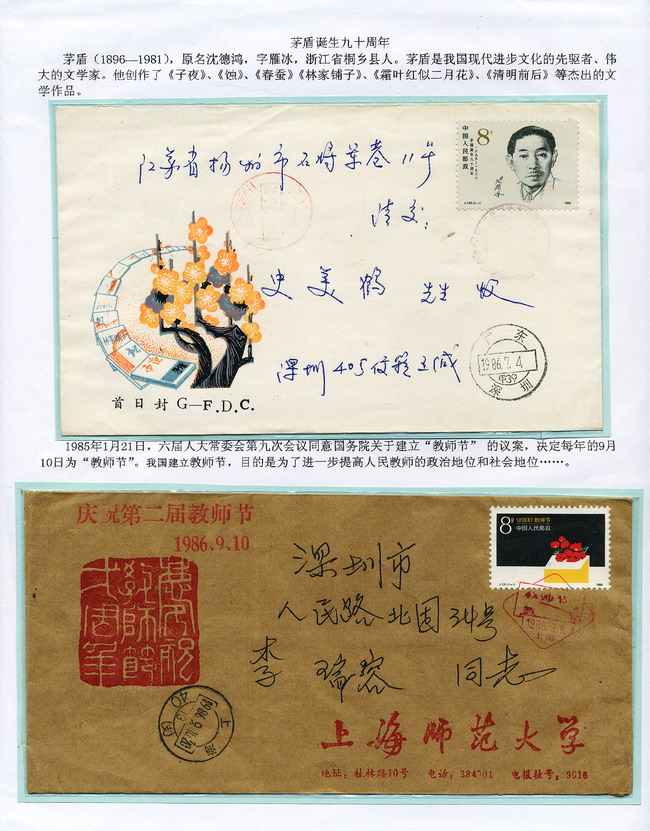 茅盾诞生九十周年
茅盾（1896—1981），原名沈德鸿，字雁冰，浙江省桐乡县人。茅盾是我国现代进步文化的先驱者、伟
大的文学家。他创作了《子夜》、《蚀》、《春蚕》《林家铺子》、《霜叶红似二月花》、《清明前后》等杰出的文
学作品。
8分
中国人民邮政
茅盾诞生九十周年
1986
江苏省扬州市石将军巷11号
请交：
史美鹤 先生收
深圳405
广东
1986.7.4
深圳
首日封 G—F.D.C.
1985年1月21日，六届人大常委会第九次会议同意国务院关于建立“教师节” 的议案，决定每年的9月
10日为“教师节”。我国建立教师节，目的是为了进一步提高人民教师的政治地位和社会地位……。
庆祝第二届教师节
1986.9.10
8分
教师节
中国人民邮政
1986
教师节
上海
深圳市
人民路北园34号
李瑞容 同志
上海
40
1986.9.11.20
上海师范大学
地址：桂林路10号 电话：384701 电报挂号：9016